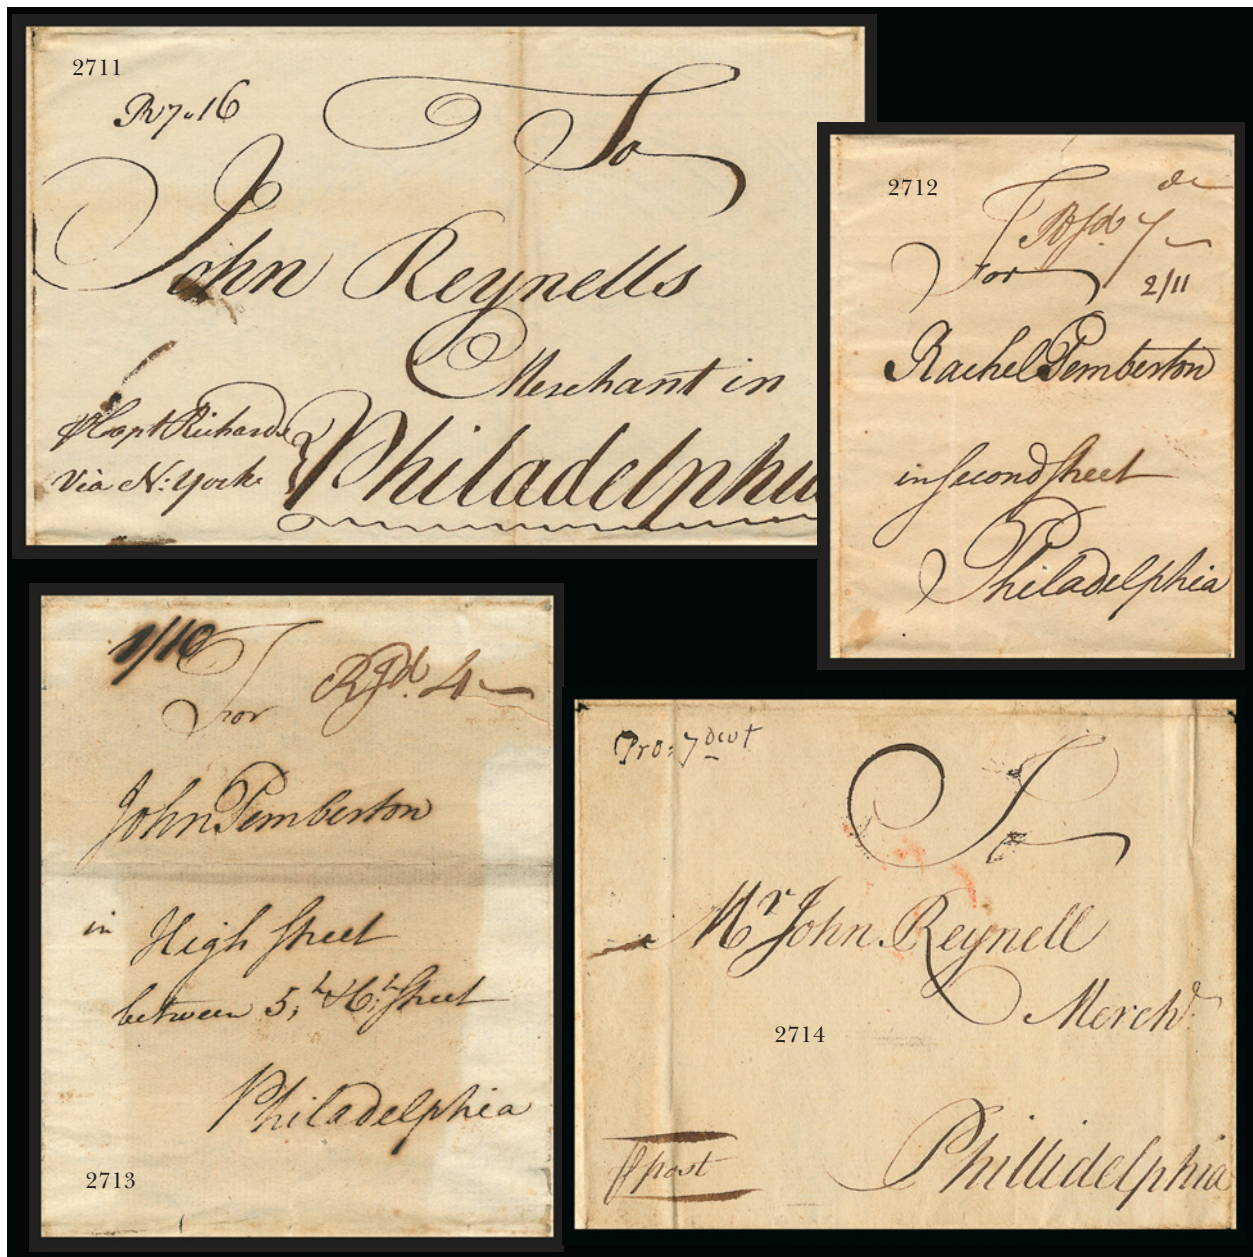 2711
To
John Reynells
Merchant in
Philadelphia
Capt Richards
Via N: York
2712
For
2/11
Rachel Pemberton
in Second Street
Philadelphia
1/10
For
John Pemberton
in High Street
between 5,th & 6,th Street
Philadelphia
2713
Pro: 7 dwt
To
Mr John Reynell
Mercht
2714
post
Phillidelphia